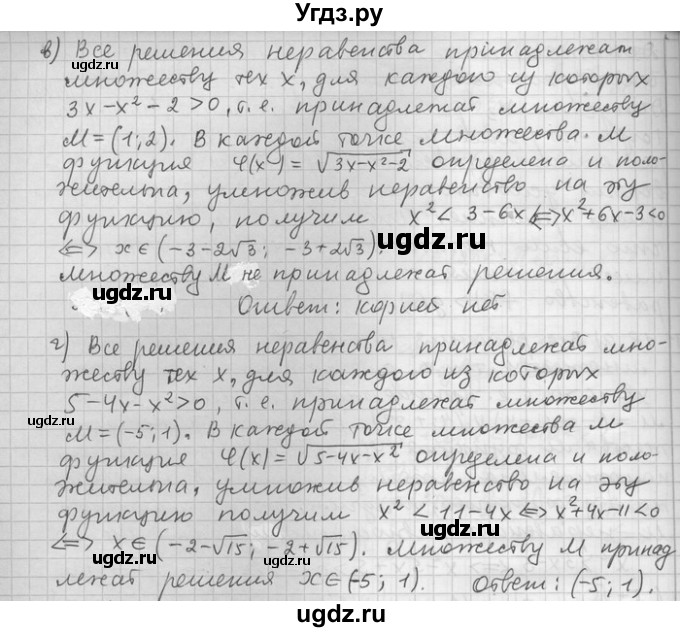 Угдз.ру
в) Все решения неравенства принадлежат
множеству тех x, для каждого из которых
3x-x²-2>0, т.е. принадлежат множеству
M=(1;2). В каждой точке множества M
функция φ(x)=√(3x-x²-2) определена и поло-
жительна, умножив неравенство на эту
функцию, получим x²<3-6x⟺x²+6x-3<0
⟺ x∈(-3-2√3; -3+2√3).
множеству M не принадлежат решения.
Ответ: корней нет
г) Все решения неравенства принадлежат мно-
жеству тех x, для каждого из которых
5-4x-x²>0, т.е. принадлежат множеству
M=(-5;1). В каждой точке множества M
функция φ(x)=√(5-4x-x²) определена и поло-
жительна, умножив неравенство на эту
функцию получим x²<11-4x⟺x²+4x-11<0
⟺ x∈(-2-√15; -2+√15). множеству M принад
лежат решения x∈(-5; 1). Ответ: (-5; 1).
ugdz.ru
ugdz.ru
ugdz.ru
ugdz.ru
ugdz.ru
ugdz.ru
ugdz.ru
ugdz.ru
ugdz.ru